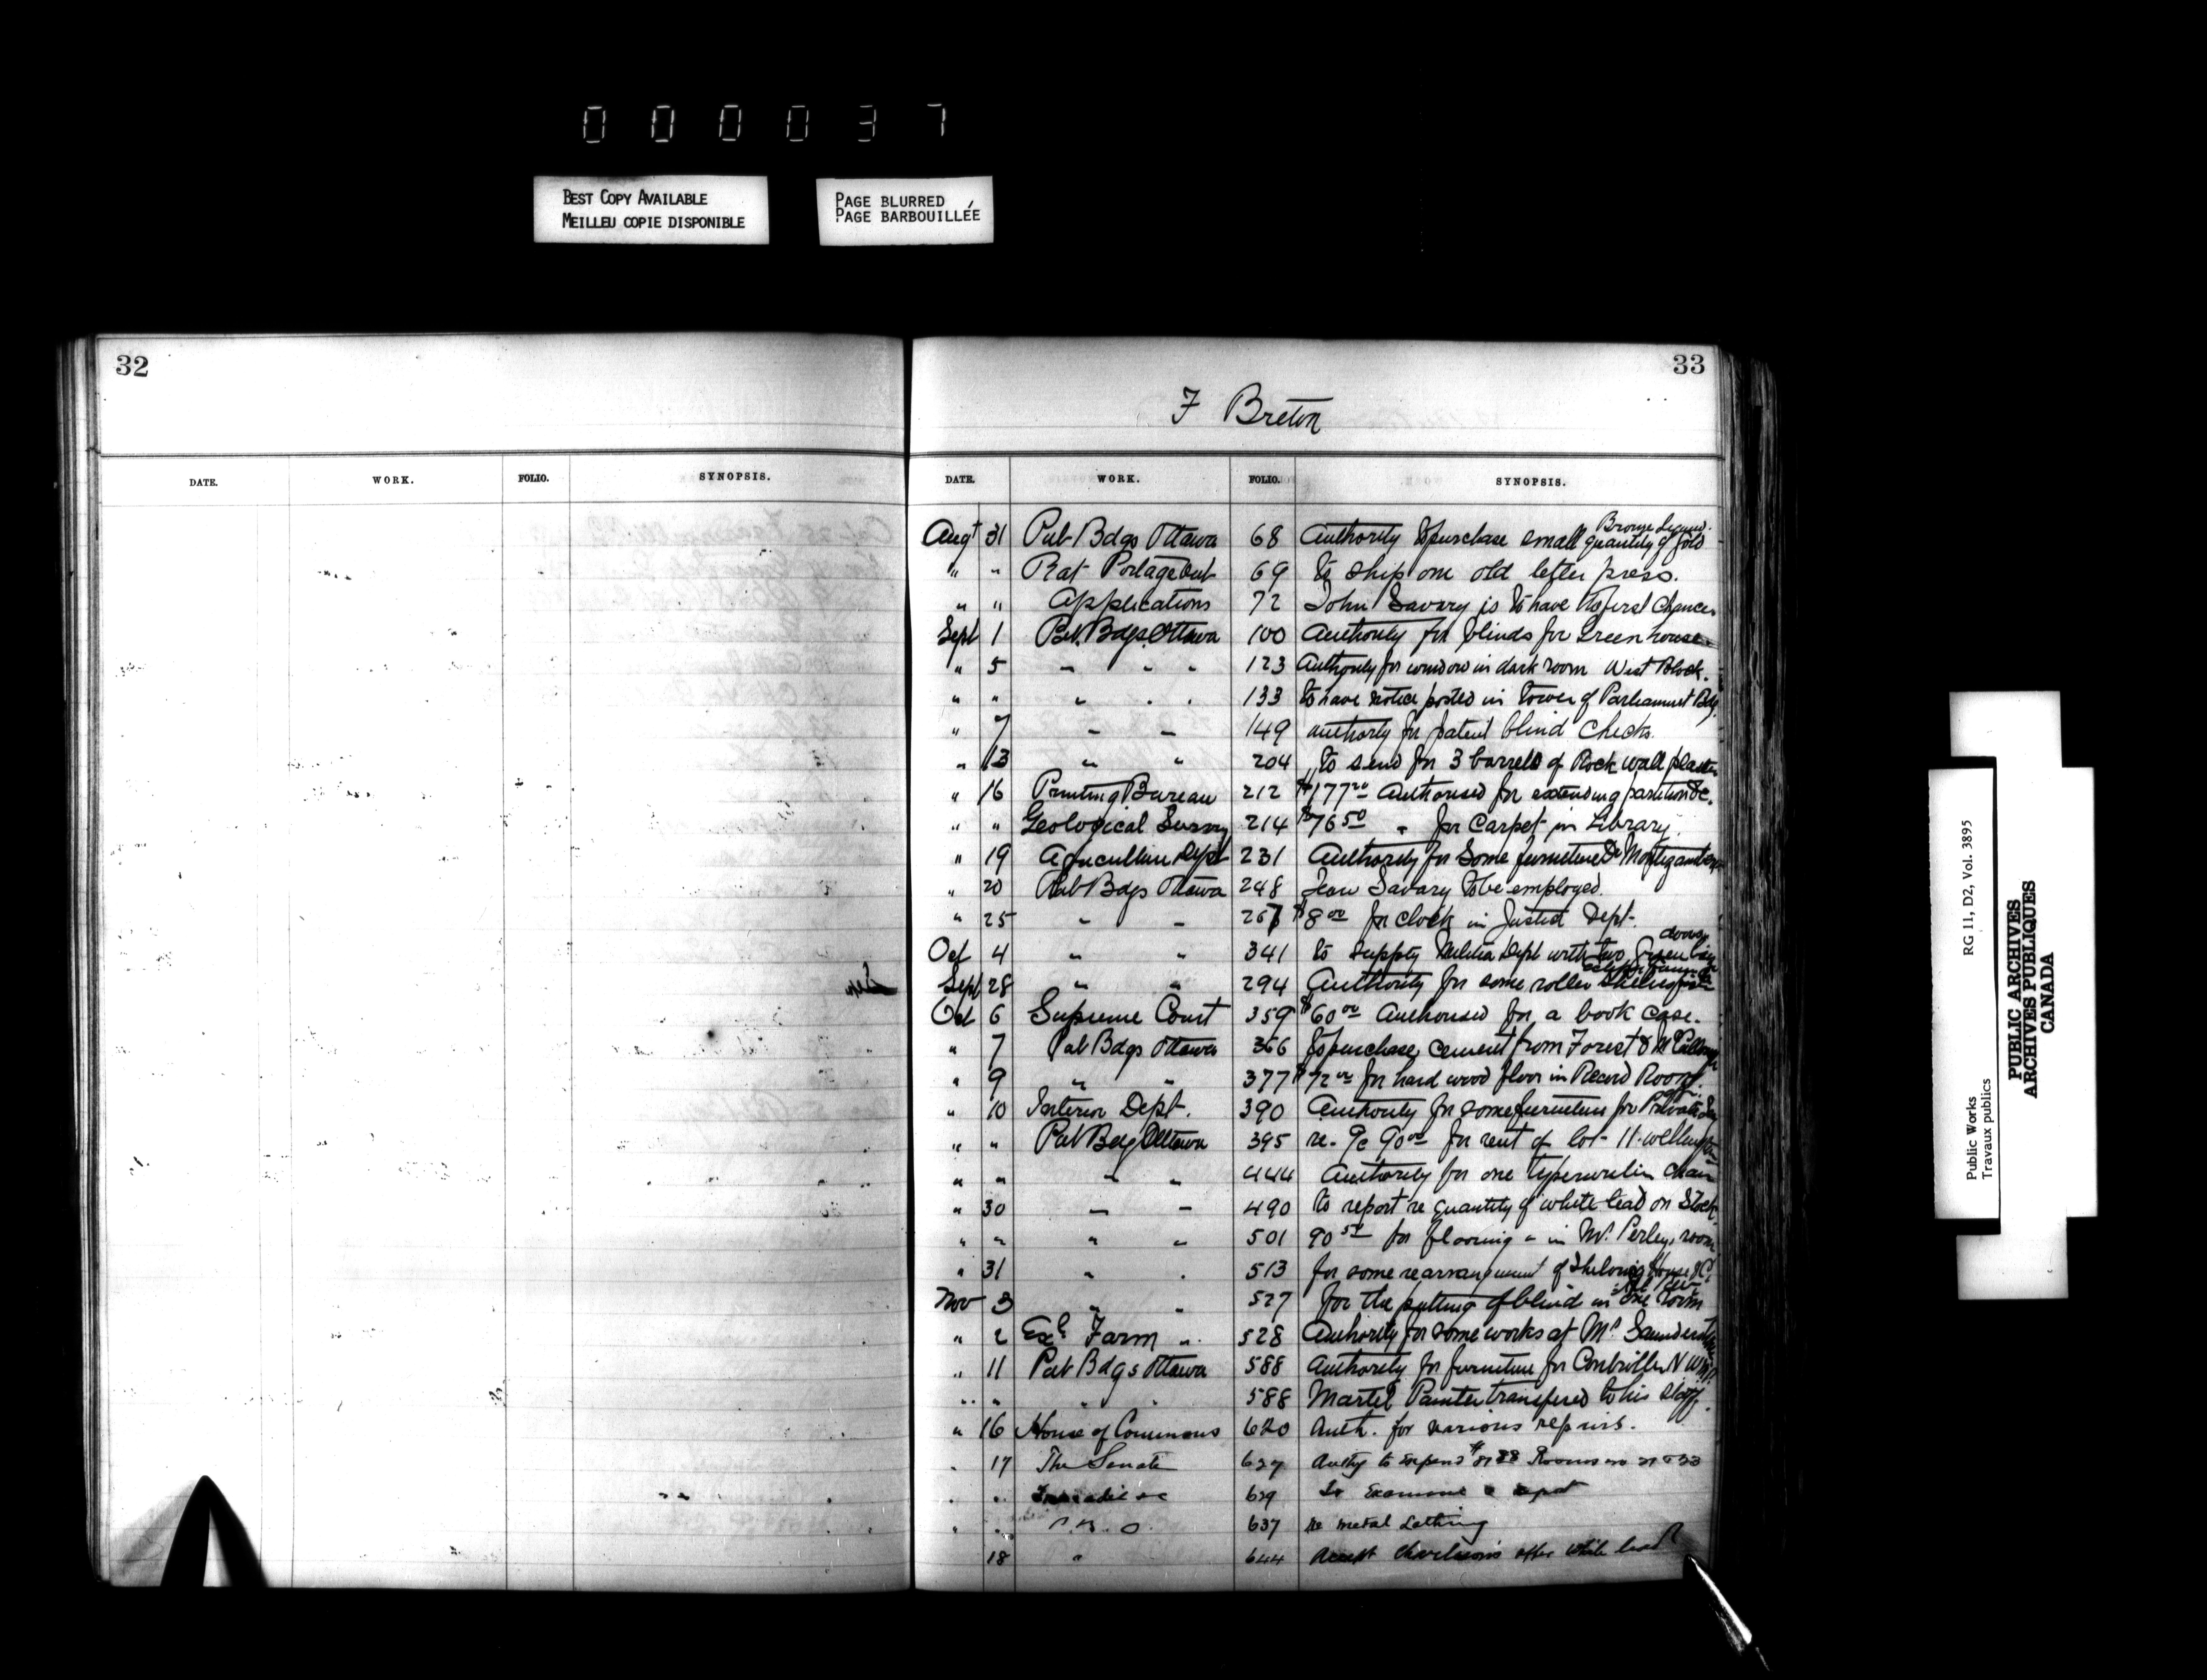 000037
BEST COPY AVAILABLE
MEILLEU COPIE DISPONIBLE
PAGE BLURRED
PAGE BARBOUILLÉE
32
DATE. WORK. FOLIO. SYNOPSIS.
33
F Breton
DATE. WORK. FOLIO. SYNOPSIS.
Augt 31 Pub Bdgs Ottawa 68 Authority to purchase small quantity of Gold Bronze Liquid.
" " Rat Portage 69 to ship one old letter press.
" " Applications 72 John Savary is to have the first chance
Sept 1 Pub. Bdgs. Ottawa 100 Authority for blinds for Green house
" 5 " " " 123 Authority for window in dark room West Block.
" " " " " 133 to have notice posted in tower of Parliament Bdg.
" 7 " " 149 authority for patent blind checks.
" 13 " " 204 to send for 3 barrels of Rock wall plaster
" 16 Printing Bureau 212 $177 Authorised for extending partition &c.
" " Geological Survey 214 $76 50 " for Carpet in Library.
" 19 Agriculture Dept 231 Authority for some furniture
" 20 Pub Bdgs Ottawa 248 Jean Savary to be employed.
" 25 " " $8 00 for clock in Justice Dept.
Oct 4 " " 341 to supply Militia Dept with two Green doors
Sept 28 " " 294 Authority for some roller
Oct 6 Supreme Court 359 $60 00 Authorised for a book case.
" 7 Pub Bdgs Ottawa 366 to purchase cement from Forest &
" 9 " " 377 $72 00 for hard wood floor in Record Room.
" 10 Interior Dept. 390 Authority for some furniture for Private
" " Pub Bdg Ottawa 395 re. 90 00 for rent of lot 11. Wellington
" " " " 444 Authority for one typewriting chair
" 30 " " 490 to report re quantity of white lead on Stock.
" " " " 501 90 50 for flooring " in Mr. Perley's room
" 31 " . 513 for some rearrangement of Shelving House of C.
Nov 3 " " 527 for the putting of blind in one room
" 2 Exl Farm " 528 Authority for some works at Mr Saunders
" 11 Pub Bdgs Ottawa 588 Authority for furniture for Controller N W M P.
" " " " 588 Martel Painter transfered to his staff.
" 16 House of Commons 620 Auth. for various repairs.
" 17 The Senate 627 Authy to expend Rooms
" " 629 To Examine & report
" " P. B. O. 637 re metal Lathing
18 " 644 Accept offer white lead
Public Works RG 11, D2, Vol. 3895
Travaux publics
PUBLIC ARCHIVES
ARCHIVES PUBLIQUES
CANADA